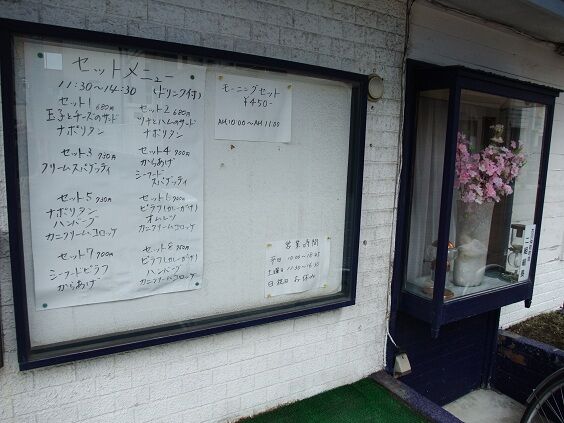 セットメニュー
11:30〜14:30 (ドリンク付)
セット1 680円
玉子とチーズのサンド
ナポリタン
セット2 680円
ツナとハムのサンド
ナポリタン
セット3 730円
クリームスパゲッティ
セット4 900円
からあげ
シーフード
スパゲッティ
セット5 930円
ナポリタン
ハンバーグ
カニクリームコロッケ
セット6 900円
ピラフ(カレーがけ)
オムレツ
カニクリームコロッケ
セット7 900円
シーフードピラフ
からあげ
セット8 950円
ピラフ(カレーがけ)
ハンバーグ
カニクリームコロッケ
モーニングセット
¥450-
AM10:00〜AM11:00
営業時間
平日 10:00〜18:45
土曜日 11:30〜16:30
日・祝日 お休み